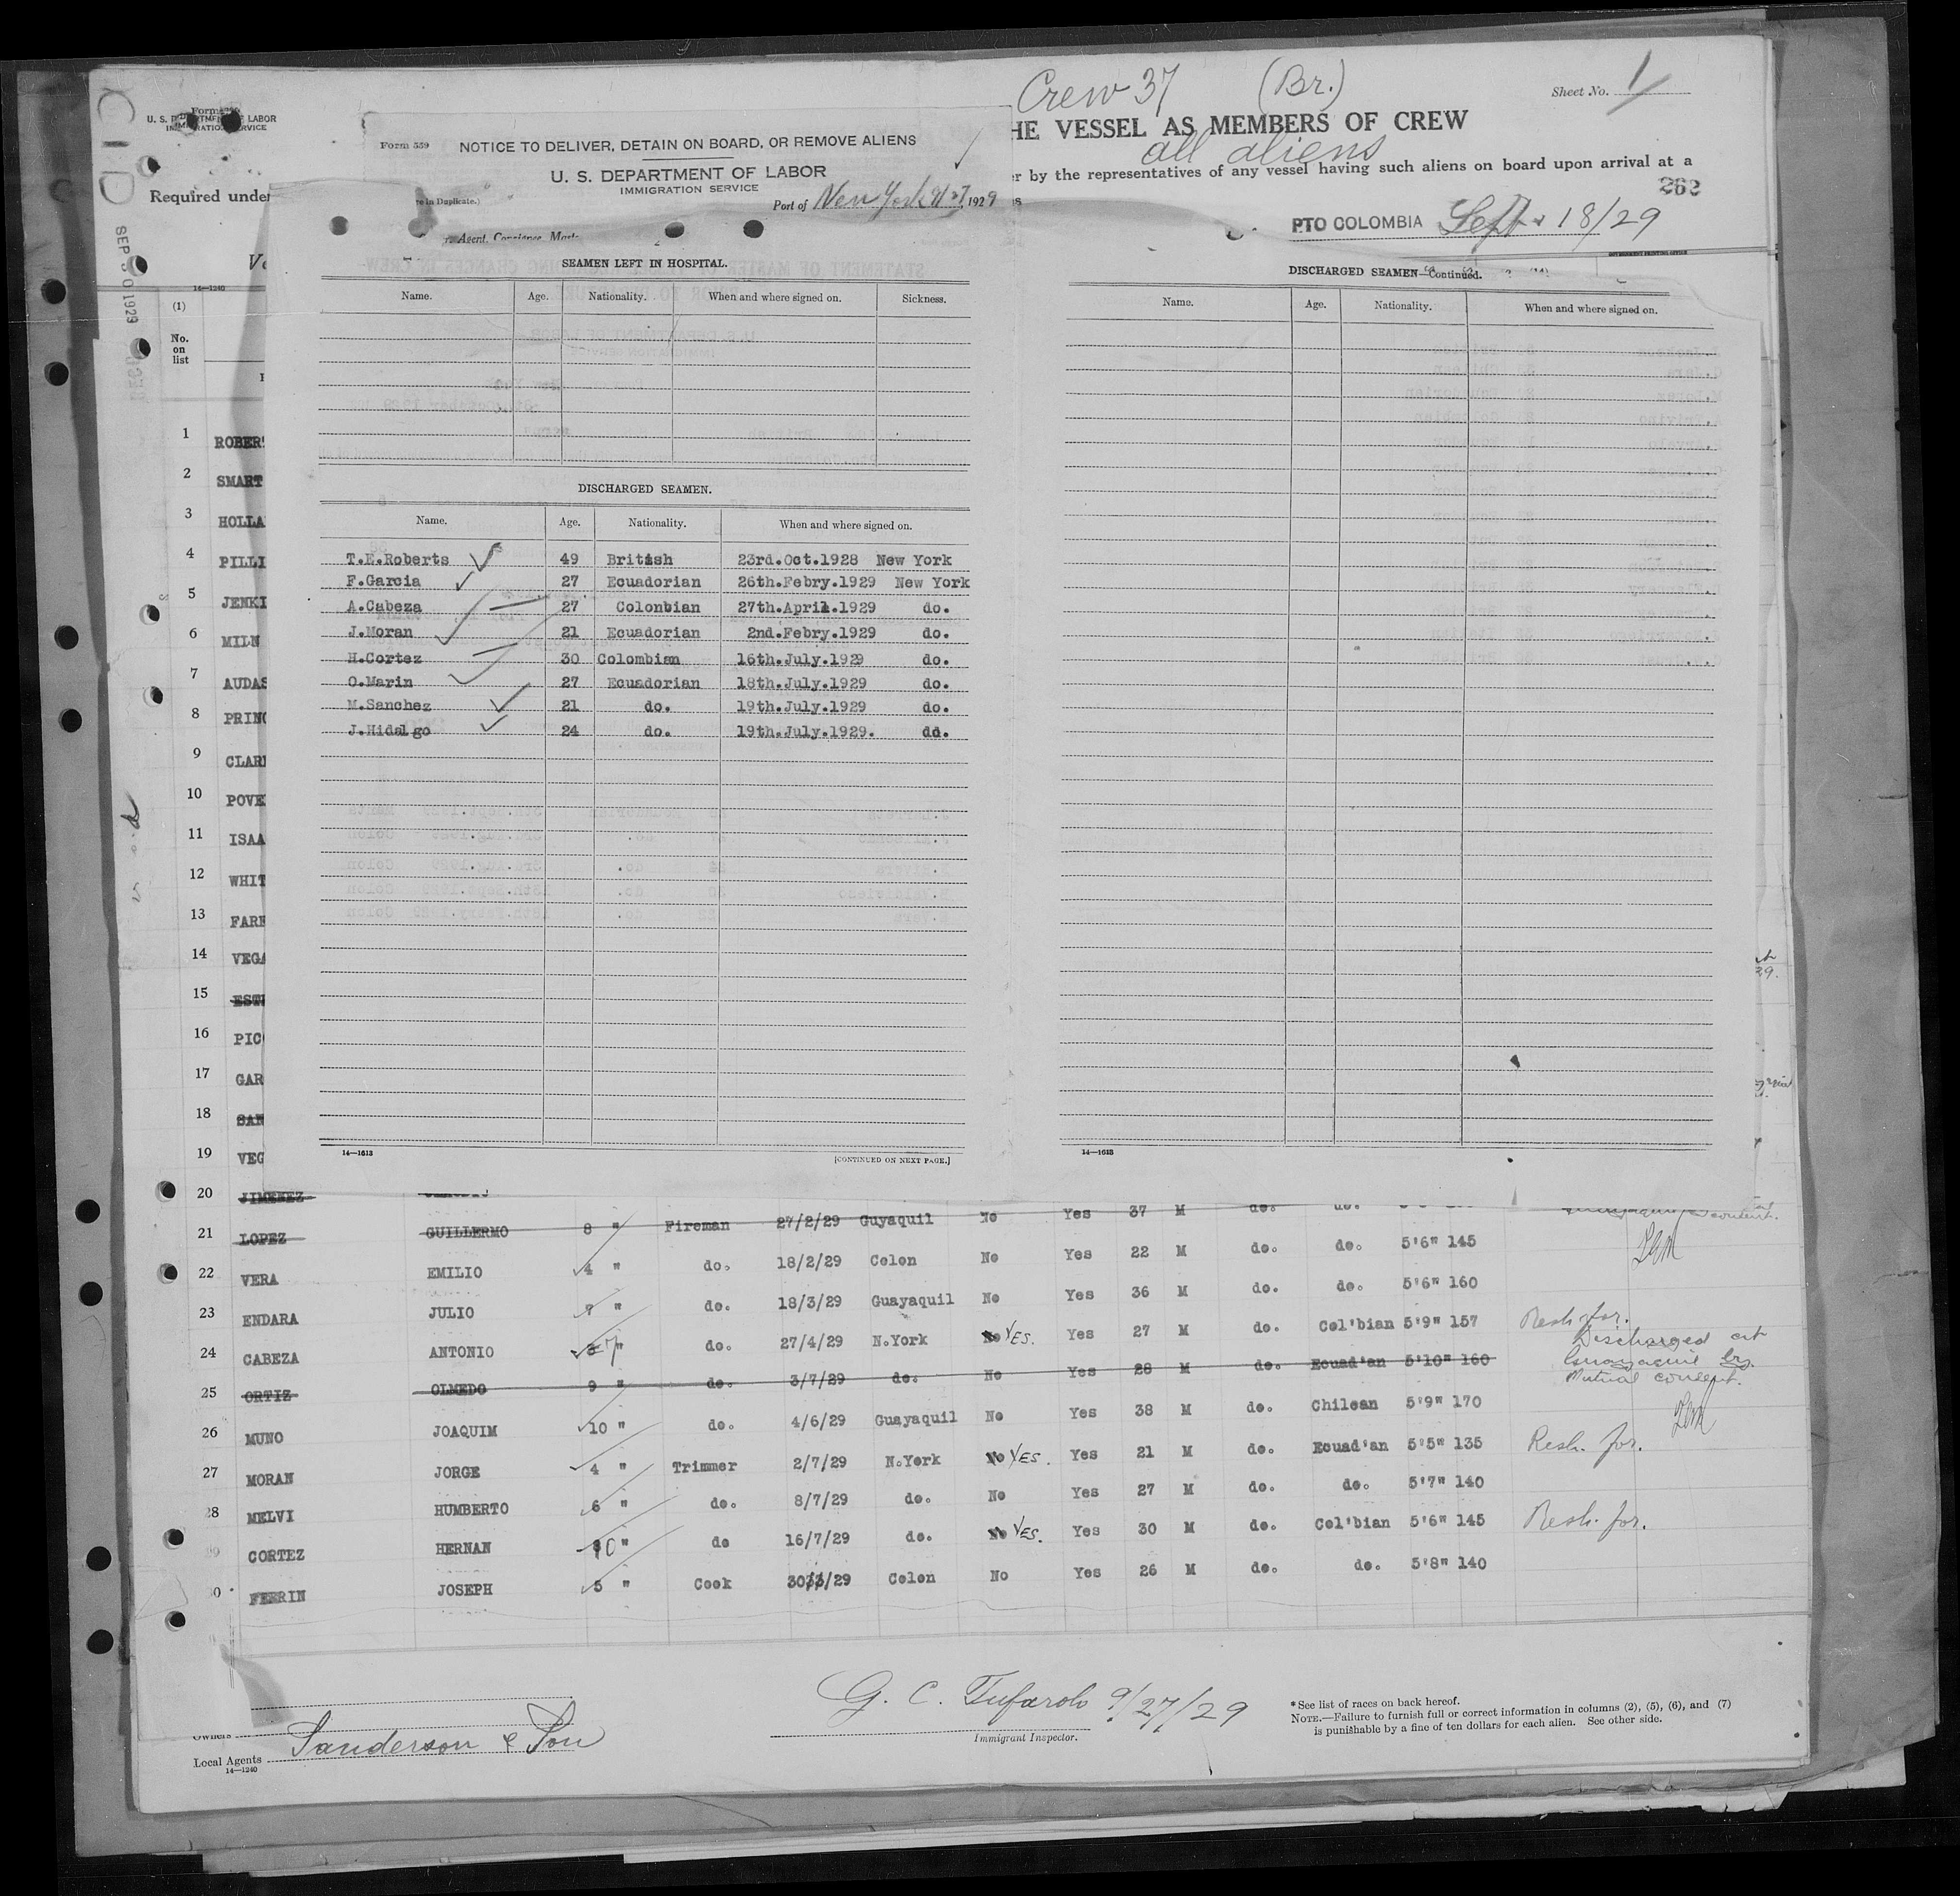 Crew 37 (Br.)
Sheet No. 1
Form
U. S. DEPARTMENT OF LABOR
IMMIGRATION SERVICE
HE VESSEL AS MEMBERS OF CREW
all aliens
Form 559 NOTICE TO DELIVER, DETAIN ON BOARD, OR REMOVE ALIENS
U. S. DEPARTMENT OF LABOR
IMMIGRATION SERVICE
Port of New York 9/27, 1929
er by the representatives of any vessel having such aliens on board upon arrival at a
Required under
262
PTO COLOMBIA Sept 18/29
SEP 30 1929
14—1240
(1)
No. on list
SEAMEN LEFT IN HOSPITAL.
Name. Age. Nationality. When and where signed on. Sickness.
DISCHARGED SEAMEN—Continued.
Name. Age. Nationality. When and where signed on.
DISCHARGED SEAMEN.
Name. Age. Nationality. When and where signed on.
T.E.Roberts 49 British 23rd.Oct.1928 New York
F.Garcia 27 Ecuadorian 26th.Febry.1929 New York
A.Cabeza 27 Colonbian 27th.April.1929 do.
J.Moran 21 Ecuadorian 2nd.Febry.1929 do.
H.Cortez 30 Colombian 16th.July.1929 do.
O.Marin 27 Ecuadorian 18th.July.1929 do.
M.Sanchez 21 do. 19th.July.1929 do.
J.Hidalgo 24 do. 19th.July.1929. dd.
14—1613 [CONTINUED ON NEXT PAGE.]
14—1613
1 ROBER
2 SMART
3 HOLLA
4 PILLI
5 JENKI
6 MILN
7 AUDAS
8 PRINC
9 CLAR
10 POVE
11 ISAA
12 WHIT
13 FARR
14 VEGA
15 EST
16 PIC
17 GAR
18 SAN
19 VEG
20 JIMENEZ
21 LOPEZ GUILLERMO 8 " Fireman 27/2/29 Guyaquil No Yes 37 M do. do.
22 VERA EMILIO 4 " do. 18/2/29 Colon No Yes 22 M do. do. 5'6" 145
23 ENDARA JULIO " do. 18/3/29 Guayaquil No Yes 36 M do. do. 5'6" 160
24 CABEZA ANTONIO 7 " do. 27/4/29 N.York No YES. Yes 27 M do. Col'bian 5'9" 157 Resh. for.
25 ORTIZ OLMEDO 9 " do. 3/7/29 do. No Yes 28 M do. Ecuad'an 5'10" 160 Discharged at Guayaquil by Mutual consent.
26 MUNO JOAQUIM 10 " do. 4/6/29 Guayaquil No Yes 38 M do. Chilean 5'9" 170
27 MORAN JORGE 4 " Trimmer 2/7/29 N.York No YES. Yes 21 M do. Ecuad'an 5'5" 135 Resh. for.
28 MELVI HUMBERTO 6 " do. 8/7/29 do. No Yes 27 M do. do. 5'7" 140
CORTEZ HERNAN 10 " do 16/7/29 do. No YES. Yes 30 M do. Col'bian 5'6" 145 Resh. for.
FERRIN JOSEPH 5 " Cook /29 Colon No Yes 26 M do. do. 5'8" 140
G. C. Tufarolo 9/27/29
Immigrant Inspector.
Owners
Local Agents Sanderson & Son
14—1240
*See list of races on back hereof.
NOTE.—Failure to furnish full or correct information in columns (2), (5), (6), and (7)
is punishable by a fine of ten dollars for each alien. See other side.